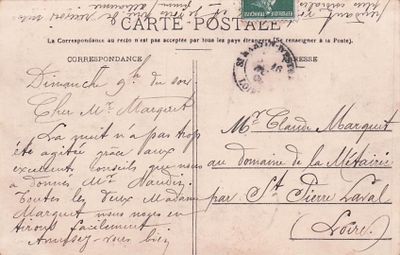 CARTE POSTALE
La Correspondance au recto n'est pas acceptée par tous les pays étrangers (Se renseigner à la Poste).
CORRESPONDANCE
ADRESSE
Dimanche 9h du soir
Cher Mr Marquet
La nuit n'a pas trop
été agitée grâce aux
excellents conseils que nous
a donnés Mr
Toutes les deux Madame
Marquet nous nous en
tirons facilement
Amusez-vous bien
Mr Claude Marquet
au domaine de la Métairie
par St Pierre Laval
(Loire)